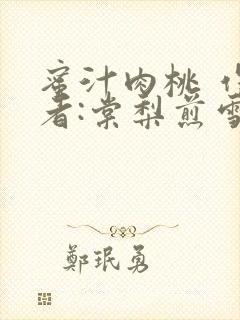 蜜汁肉桃 作
者:棠梨煎雪
鄭珉勇